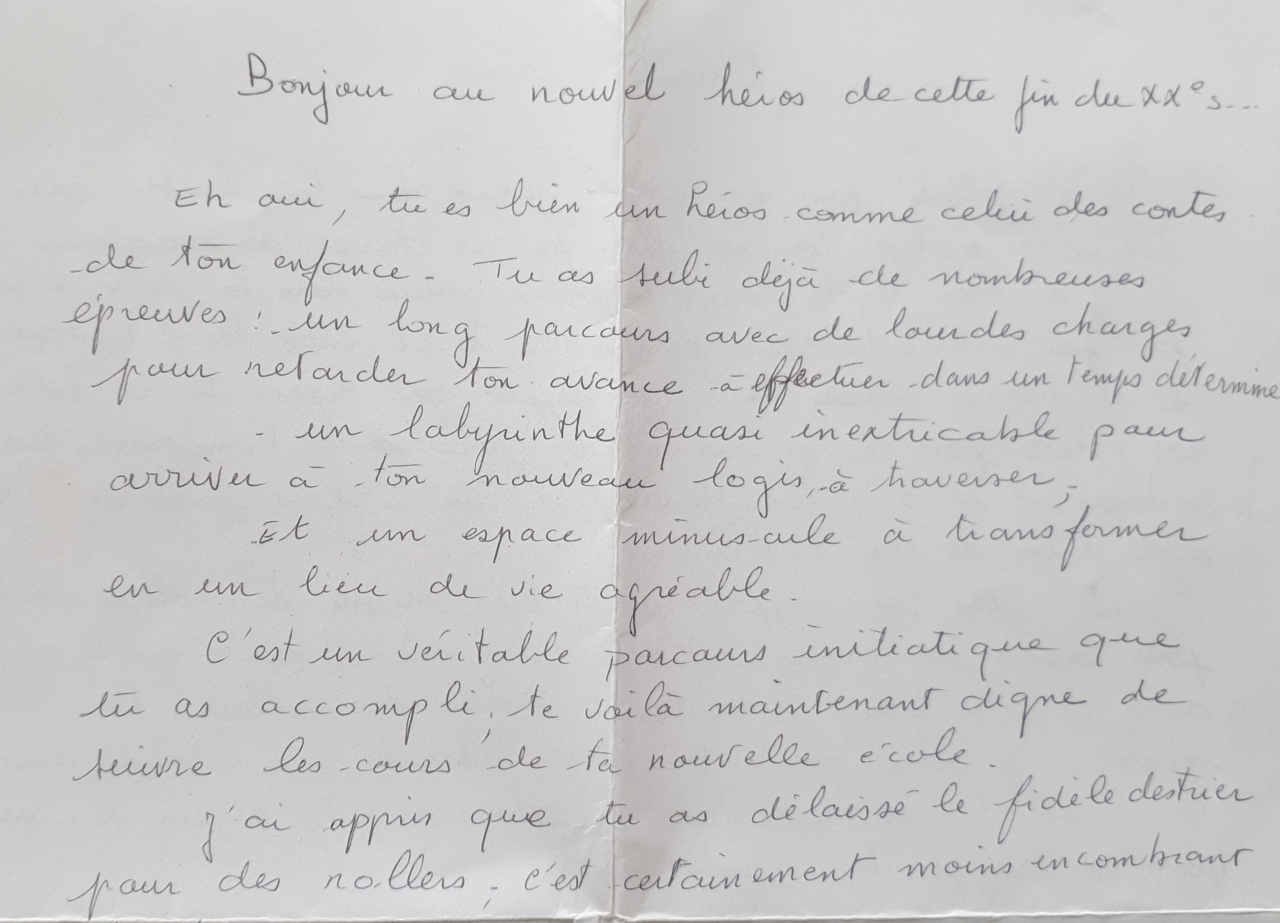 Bonjour au nouvel héros de cette fin du XXe s...
Eh oui, tu es bien un héros comme celui des contes
de ton enfance. Tu as subi déjà de nombreuses
épreuves : un long parcours avec de lourdes charges
pour retarder ton avance à effectuer dans un temps déterminé
- un labyrinthe quasi inextricable pour
arriver à ton nouveau logis, à traverser,
Et un espace minuscule à transformer
en un lieu de vie agréable.
C'est un véritable parcours initiatique que
tu as accompli, te voilà maintenant digne de
suivre les cours de ta nouvelle école.
J'ai appris que tu as délaissé le fidèle destrier
pour des rollers, c'est certainement moins encombrant